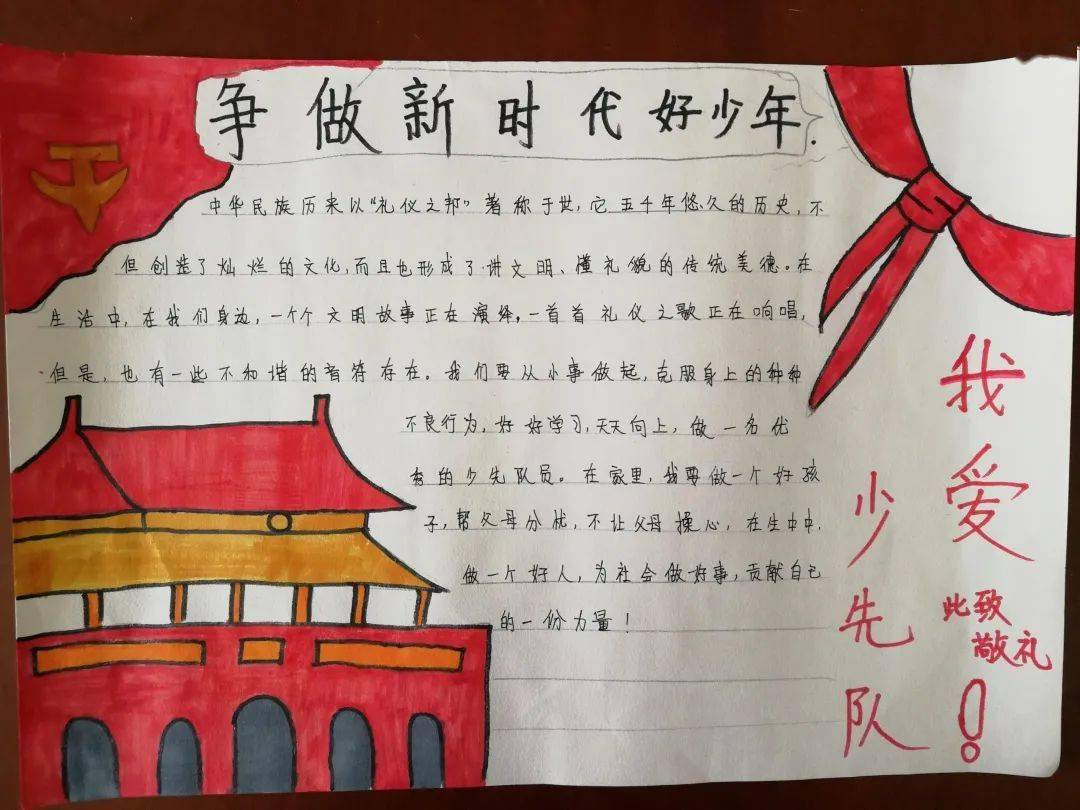 争做新时代好少年.
中华民族历来以“礼仪之邦”著称于世,它五千年悠久的历史,不
但创造了灿烂的文化,而且也形成了讲文明、懂礼貌的传统美德。在
生活中,在我们身边,一个个文明故事正在演绎,一首首礼仪之歌正在响唱,
但是,也有一些不和谐的音符存在。我们要从小事做起,克服身上的种种
不良行为,好好学习,天天向上,做一名优
秀的少先队员。在家里,我要做一个好孩
子,帮父母分忧,不让父母操心,在生中中,
做一个好人,为社会做好事,贡献自己
的一份力量!
我爱
少先队!
此致
敬礼